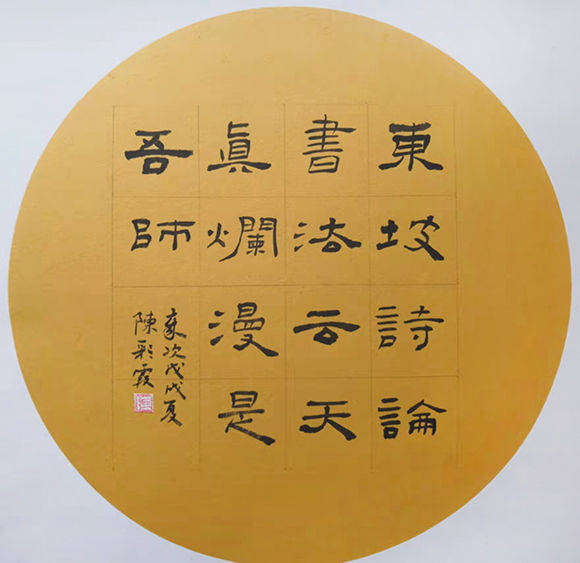 東坡詩論
書法云天
真爛漫是
吾師
歲次戊戌夏
陳彩霞